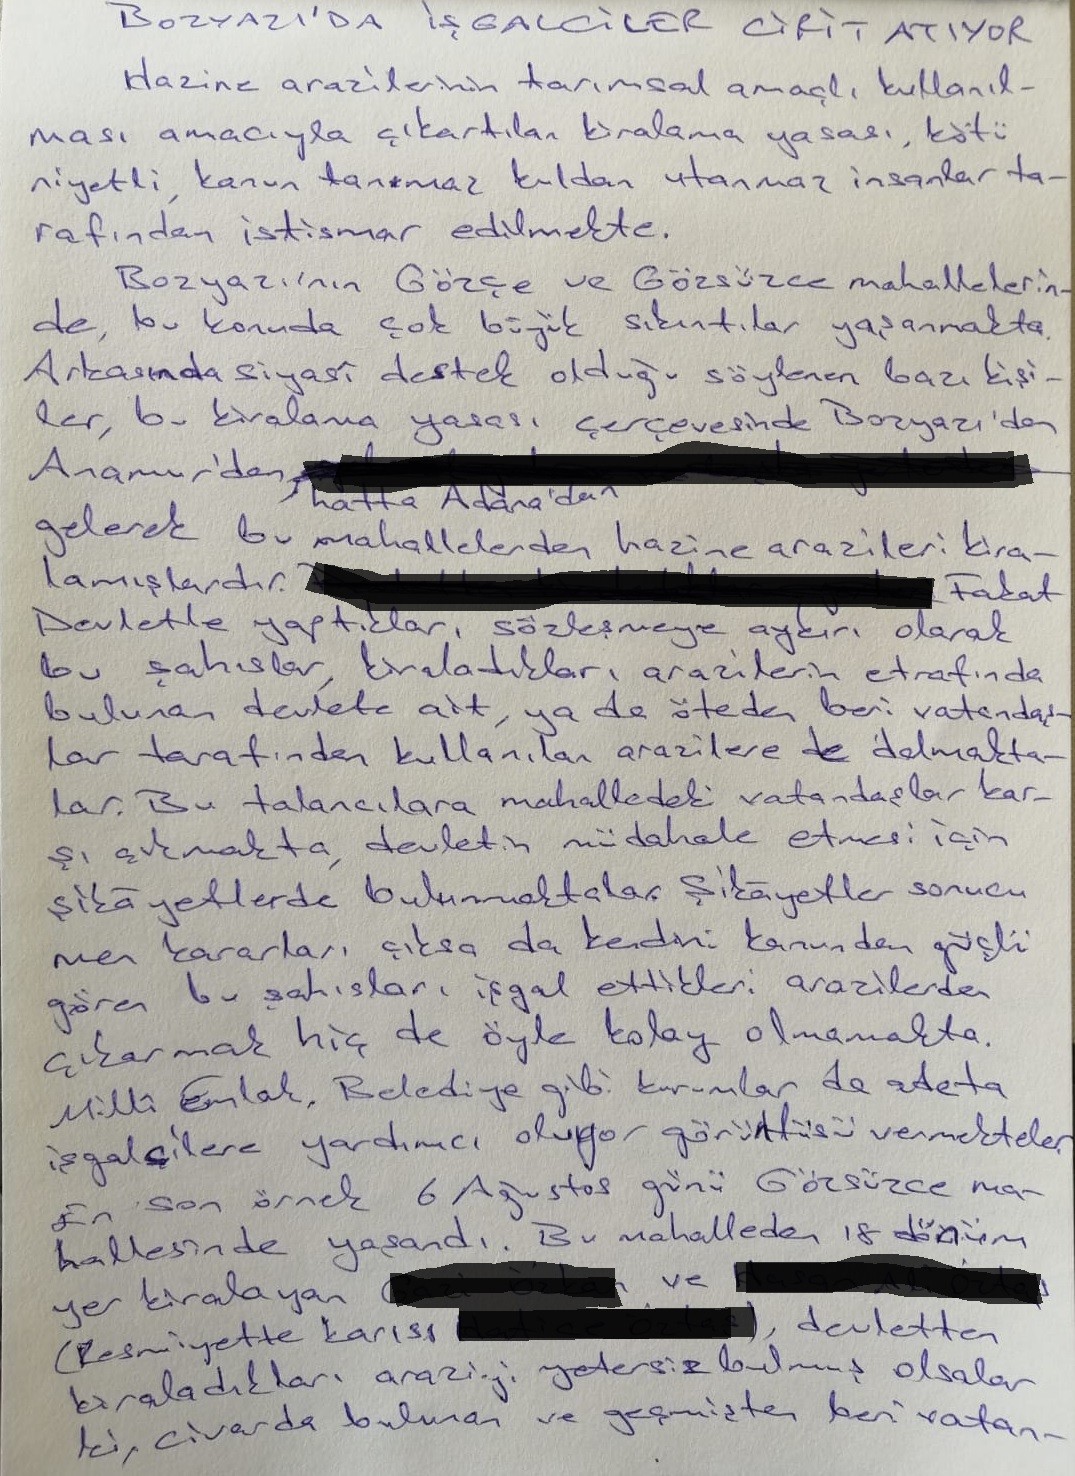 BOZYAZI'DA İŞGALCİLER CİRİT ATIYOR
Hazine arazilerinin tarımsal amaçlı kullanıl-
ması amacıyla çıkartılan kiralama yasası, kötü
niyetli, kanun tanımaz kuldan utanmaz insanlar ta-
rafından istismar edilmekte.
Bozyazı'nın Gözçe ve Gözsüzce mahallelerin-
de, bu konuda çok büyük sıkıntılar yaşanmakta.
Arkasında siyasî destek olduğu söylenen bazı kişi-
ler, bu kiralama yasası çerçevesinde Bozyazı'dan
Anamur'dan,
hatta Adana'dan
gelerek bu mahallelerden hazine arazileri kira-
lamışlardır. Fakat
Devletle yaptıkları sözleşmeye aykırı olarak
bu şahıslar, kiraladıkları arazilerin etrafında
bulunan devlete ait, ya da öteden beri vatandaş-
lar tarafından kullanılan arazilere de dalmakta-
lar. Bu talancılara mahalledeki vatandaşlar kar-
şı çıkmakta, devletin müdahale etmesi için
şikâyetlerde bulunmaktalar. Şikâyetler sonucu
men kararları çıksa da kendini kanundan güçlü
gören bu şahısları işgal ettikleri arazilerden
çıkarmak hiç de öyle kolay olmamakta.
Milli Emlak, Belediye gibi kurumlar da adeta
işgalcilere yardımcı oluyor görüntüsü vermekteler
En son örnek 6 Ağustos günü Gözsüzce ma-
hallesinde yaşandı. Bu mahalleden 18 dönüm
yer kiralayan ve
(Resmiyette karısı ), devletten
kiraladıkları araziyi yetersiz bulmuş olsalar
ki, civarda bulunan ve geçmişten beri vatan-